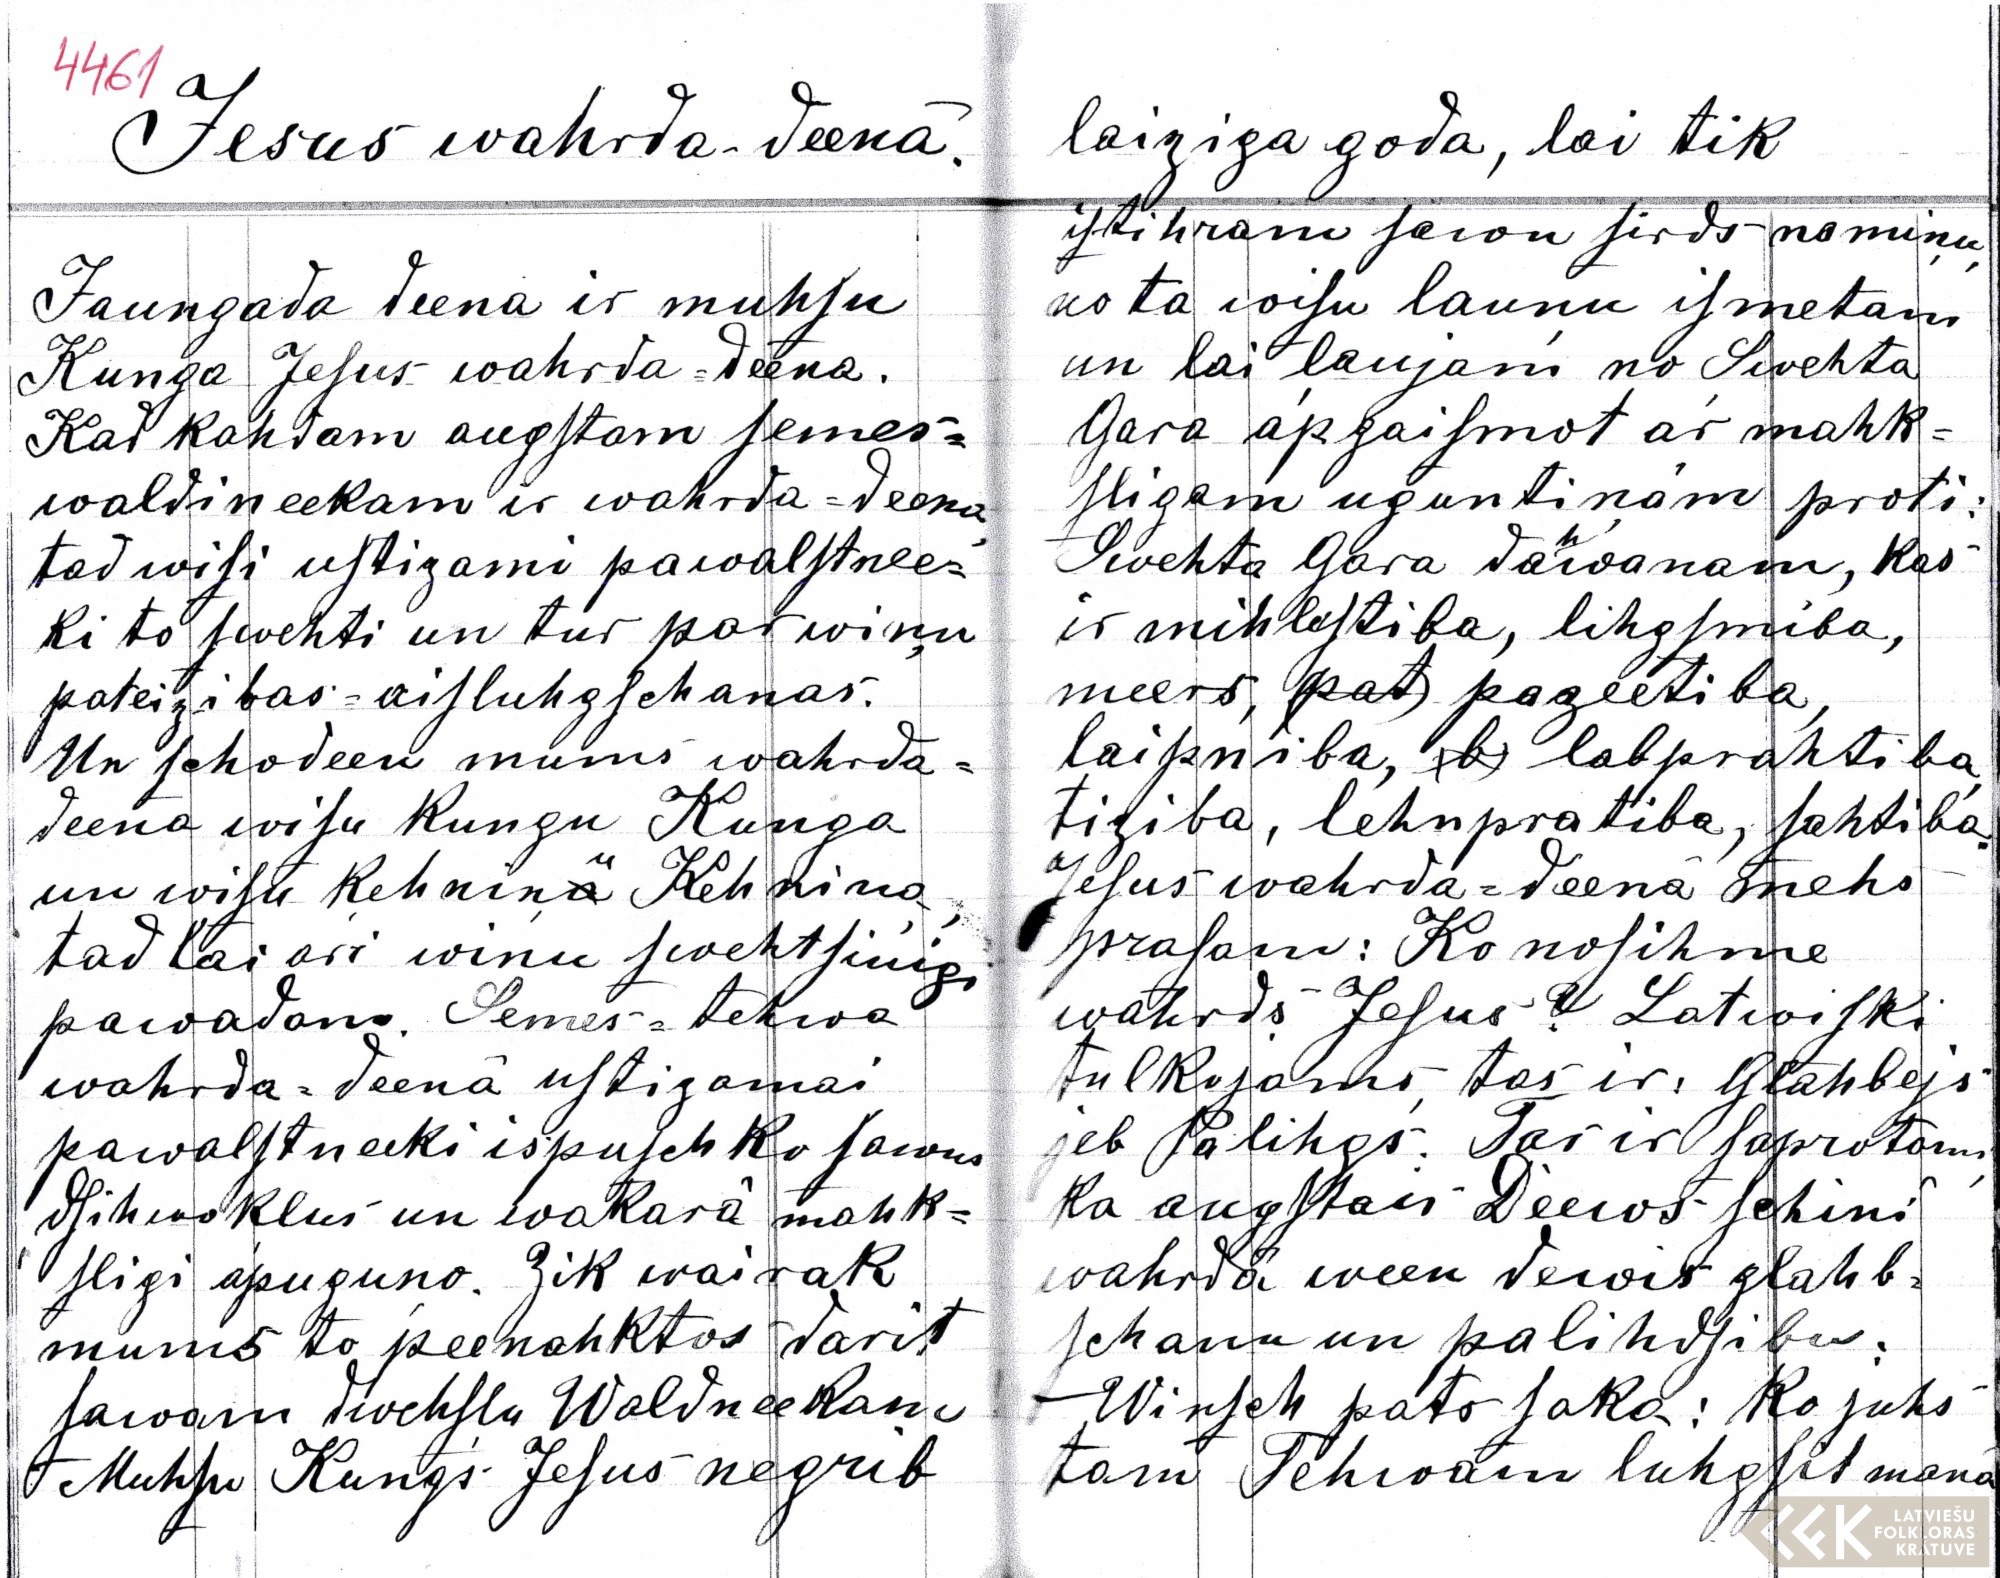 4461
Jesus wahrda-deenā.
Jaungada deena ir muhſu
Kunga Jeſus wahrda=deena.
Kad kahdam augſtam ſemes=
waldineekam ir wahrda=deena,
tad wiſi uſtizami pawalſtnee=
ki to ſwehti un tur par wiņu
pateizibas=aiſluhgſchanas.
Un ſchodeen mums wahrda=
deena wiſu Kungu Kunga
un wiſu ķehniņu Ķehniņa,
tad lai ari wiņu ſwehtſwiņigi
pawadam. Semes=tehwa
wahrda=deenā uſtizamai
pawalſtneeki ispuſchko ſawus
dſihwoklus un wakarā mahk=
ſligi apuguņo. Zik wairak
mums to peenahktos darit
ſawam dwehſļu Waldneekam
Muhſu Kungs Jeſus negrib
laiziga goda, lai tik
iſtihram ſawu ſirds namiņu,
no ta wiſu launu iſmetam
un lai laujam no Swehta
Gara apgaiſmot ar mahk=
ſligam uguntiņam proti:
Swehta Gara dahwanam, kas
ir mihleſtiba, lihgſmiba,
meers, (pat) pazeetiba,
laipniba, (b) labprahtiba,
tiziba, lehnpratiba, ſahtiba.
Jeſus wahrda=deenā mehs
praſam: Ko noſihme
wahrds Jeſus? Latwiſki
tulkojams, tas ir: Glahbejs
jeb Palihgs. Tas ir ſaprotams,
ka augſtais Deews ſchini
wahrdā ween dewis glahb=
ſchanu un palihdſibu.
Winſch pats ſaka: Ko juhs
tam Tehwam luhgſit manā
LATVIEŠU
FOLKLORAS
KRĀTUVE